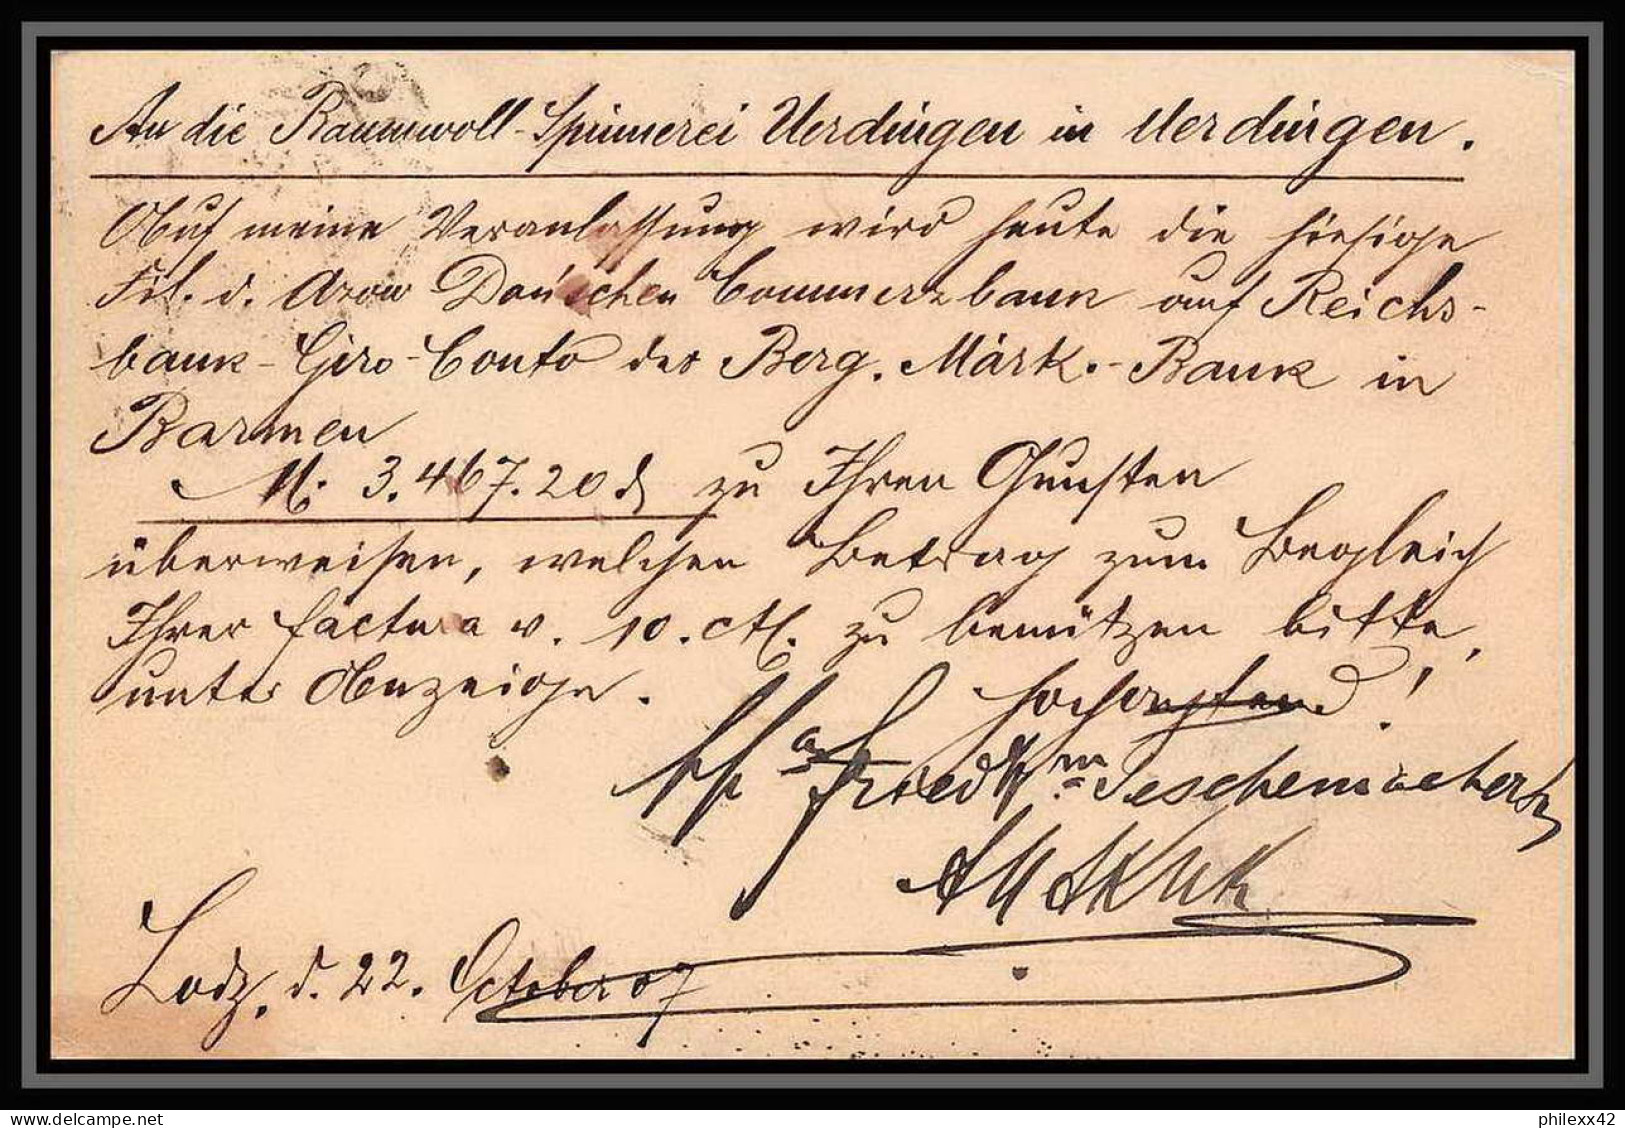 An die Baumwoll-Spinnerei Uerdingen in Uerdingen.
Auf meine Veranlassung wird heute die hiesige
Fil. d. Azow Don'schen Commerzbank auf Reichs-
bank-Giro-Conto der Berg. Märk.-Bank in
Barmen
M. 3.467.20 zu Ihren Gunsten
überweisen, welchen Betrag zum Begleich
Ihrer factura v. 10. zu benützen bitte,
unter Anzeige.
Hochachtend!
Friedr. Wm Teschemacher
Lodz, d. 22. October 07
philexx42